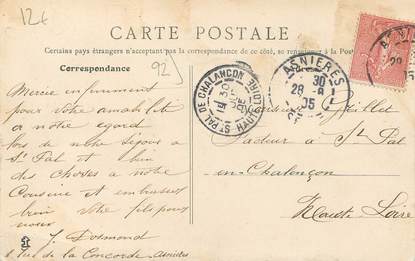 12€
CARTE POSTALE
Certains pays étrangers n'acceptant pas la correspondance de ce côté, se renseigner à la Poste
Correspondance
92)
ST PAL DE CHALANCON
HAUTE LOIRE
30
ASNIERES
30
28 -8
05
ASNIERES
29
05
Mercie infiniment
pour votre amabilité
a notre egard
lors de notre séjour a
St Pal et bien
des choses a notre
Cousine et embrassez
bien votre fils pour
nous
J. Dormond
8 rue de la Concorde Asnières
Monsieur
Facteur a St Pal
en Chalençon
Haute Loire